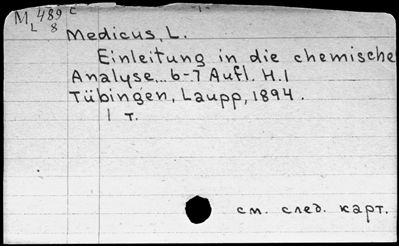 M 489 c
L 8
Medicus, L.
Einleitung in die chemische
Analyse... 6-7 Aufl. H.I
Tübingen, Laupp, 1894.
1 т.
см. след. карт.